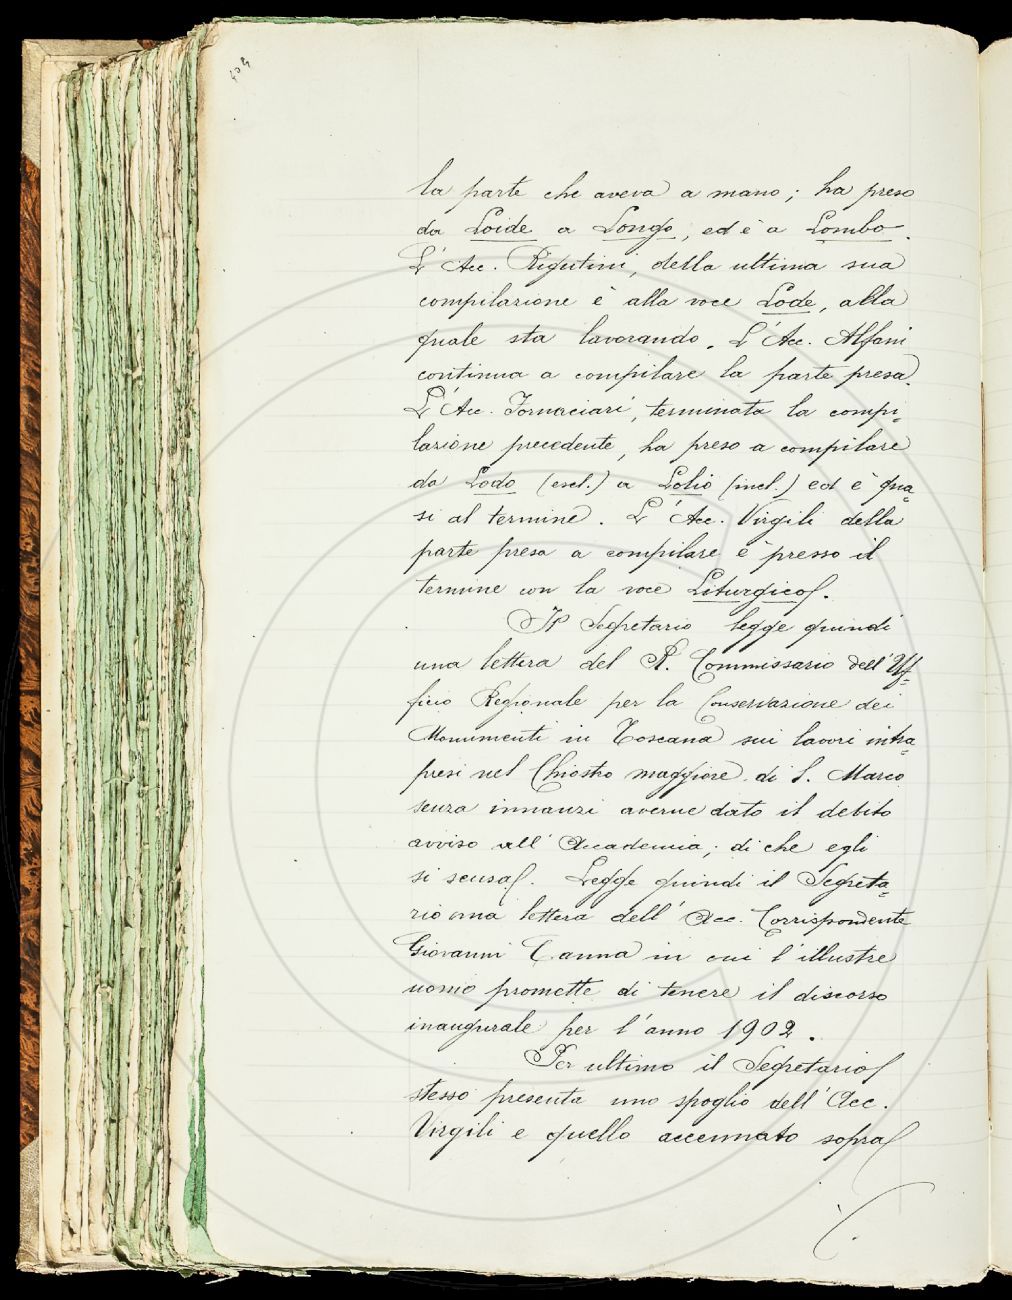 404
la parte che aveva a mano; ha preso
da Loide a Longo, ed è a Lombo.
L'Acc. Rigutini, della ultima sua
compilazione è alla voce Lode, alla
quale sta lavorando. L'Acc. Alfani
continua a compilare la parte presa.
L'Acc. Fornaciari, terminata la compi=
lazione precedente, ha preso a compilare
da Lodo (escl.) a Lolio (incl.) ed è qua=
si al termine. L'Acc. Virgili della
parte presa a compilare è presso il
termine con la voce Liturgico.
Il Segretario legge quindi
una lettera del R. Commissario dell'Uf=
ficio Regionale per la Conservazione dei
Monumenti in Toscana sui lavori intra=
presi nel Chiostro maggiore di S. Marco
senza innanzi averne dato il debito
avviso all'Accademia; di che egli
si scusa. Legge quindi il Segreta=
rio una lettera dell'Acc. Corrispondente
Giovanni Canna in cui l'illustre
uomo promette di tenere il discorso
inaugurale per l'anno 1902.
Per ultimo il Segretario
stesso presenta uno spoglio dell'Acc.
Virgili e quello accennato sopra